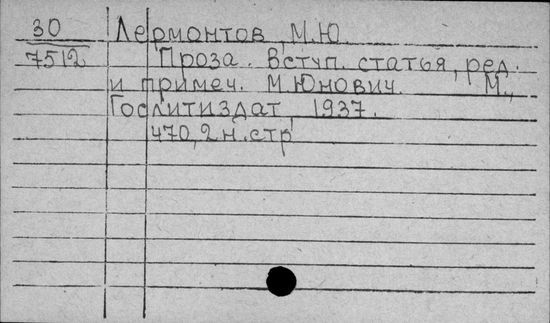 30 Лермонтов, М.Ю.
7512 Проза. Вступ. статья, ред.
и примеч. М.Юнович. М.,
Гослитиздат, 1937.
470,2н.стр